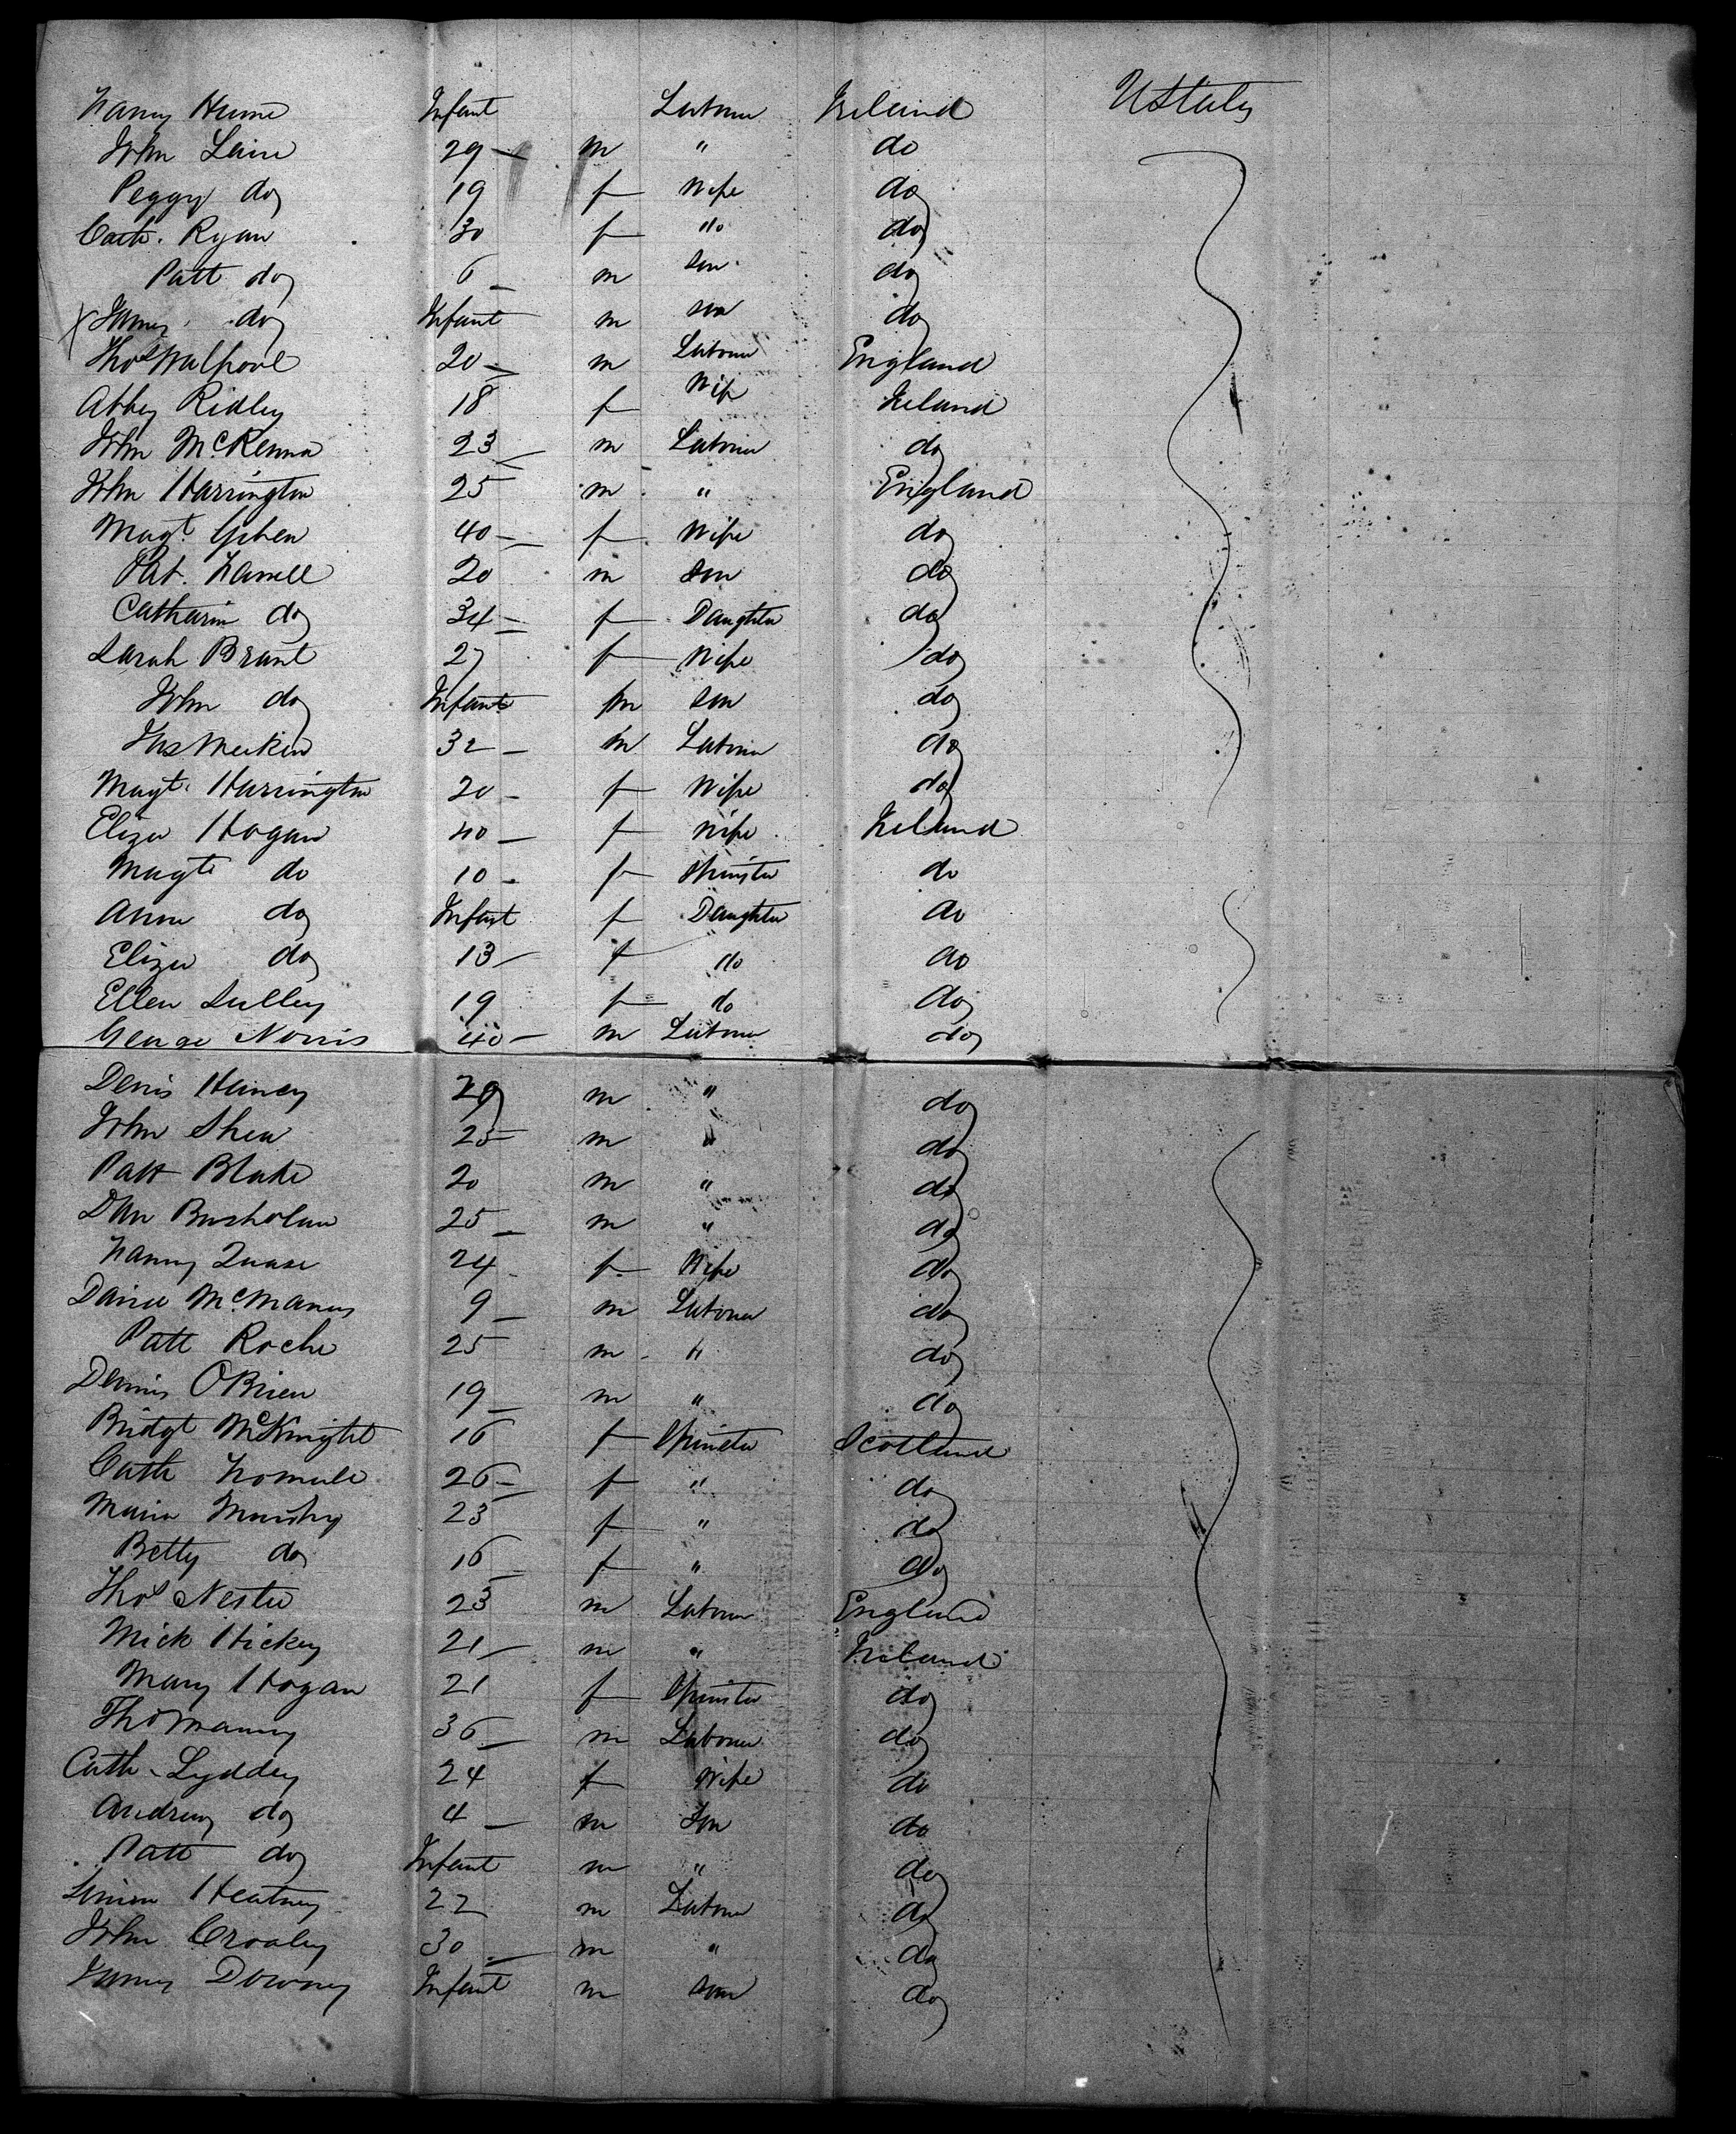 Infant Labourer Ireland U States
John Laine 29 m " do
Peggy do 19 f Wife do
Cath. Ryan 30 f do do
Patt do 6 m son do
X James do Infant m son do
Thos Walpool 20 m Labourer England
Abby Ridley 18 f Wife Ireland
John McKenna 23 m Labourer do
John Harrington 25 m " England
Magt. 40 f Wife do
Pat. 20 m son do
Catharin do 34 f Daughter do
Sarah Brant 27 f Wife do
John do Infant m son do
32 m Labourer do
Magt. Harrington 20 f Wife do
Eliza Hogan 40 f Wife Ireland
Magt do 10 f Spinster do
Anne do Infant f Daughter do
Eliza do 13 f do do
Ellen Sulley 19 f do do
George Norris 40 m Labourer do
Denis 29 m " do
John Shea 25 m " do
Patt Blake 20 m " do
Dan 25 m " do
24 f Wife do
McManus 9 m Labourer do
Patt Roche 25 m " do
Dennis OBrien 19 m " do
Bridgt McKnight 16 f Spinster Scotland
Cath 26 f " do
Maria 23 f " do
Betty do 16 f " do
Thos Nester 23 m Labourer England
Mick Hickey 21 m " Ireland
Mary Hogan 21 f Spinster do
Thos Manny 36 m Labourer do
Cath. Lyddey 24 f Wife do
Andrew do 4 m Son do
Patt do Infant m " do
Simon 22 m Labourer do
John Croaley 30 m " do
James Downey Infant m son do